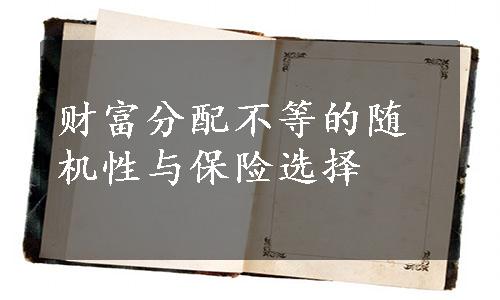 财富分配不等的随
机性与保险选择